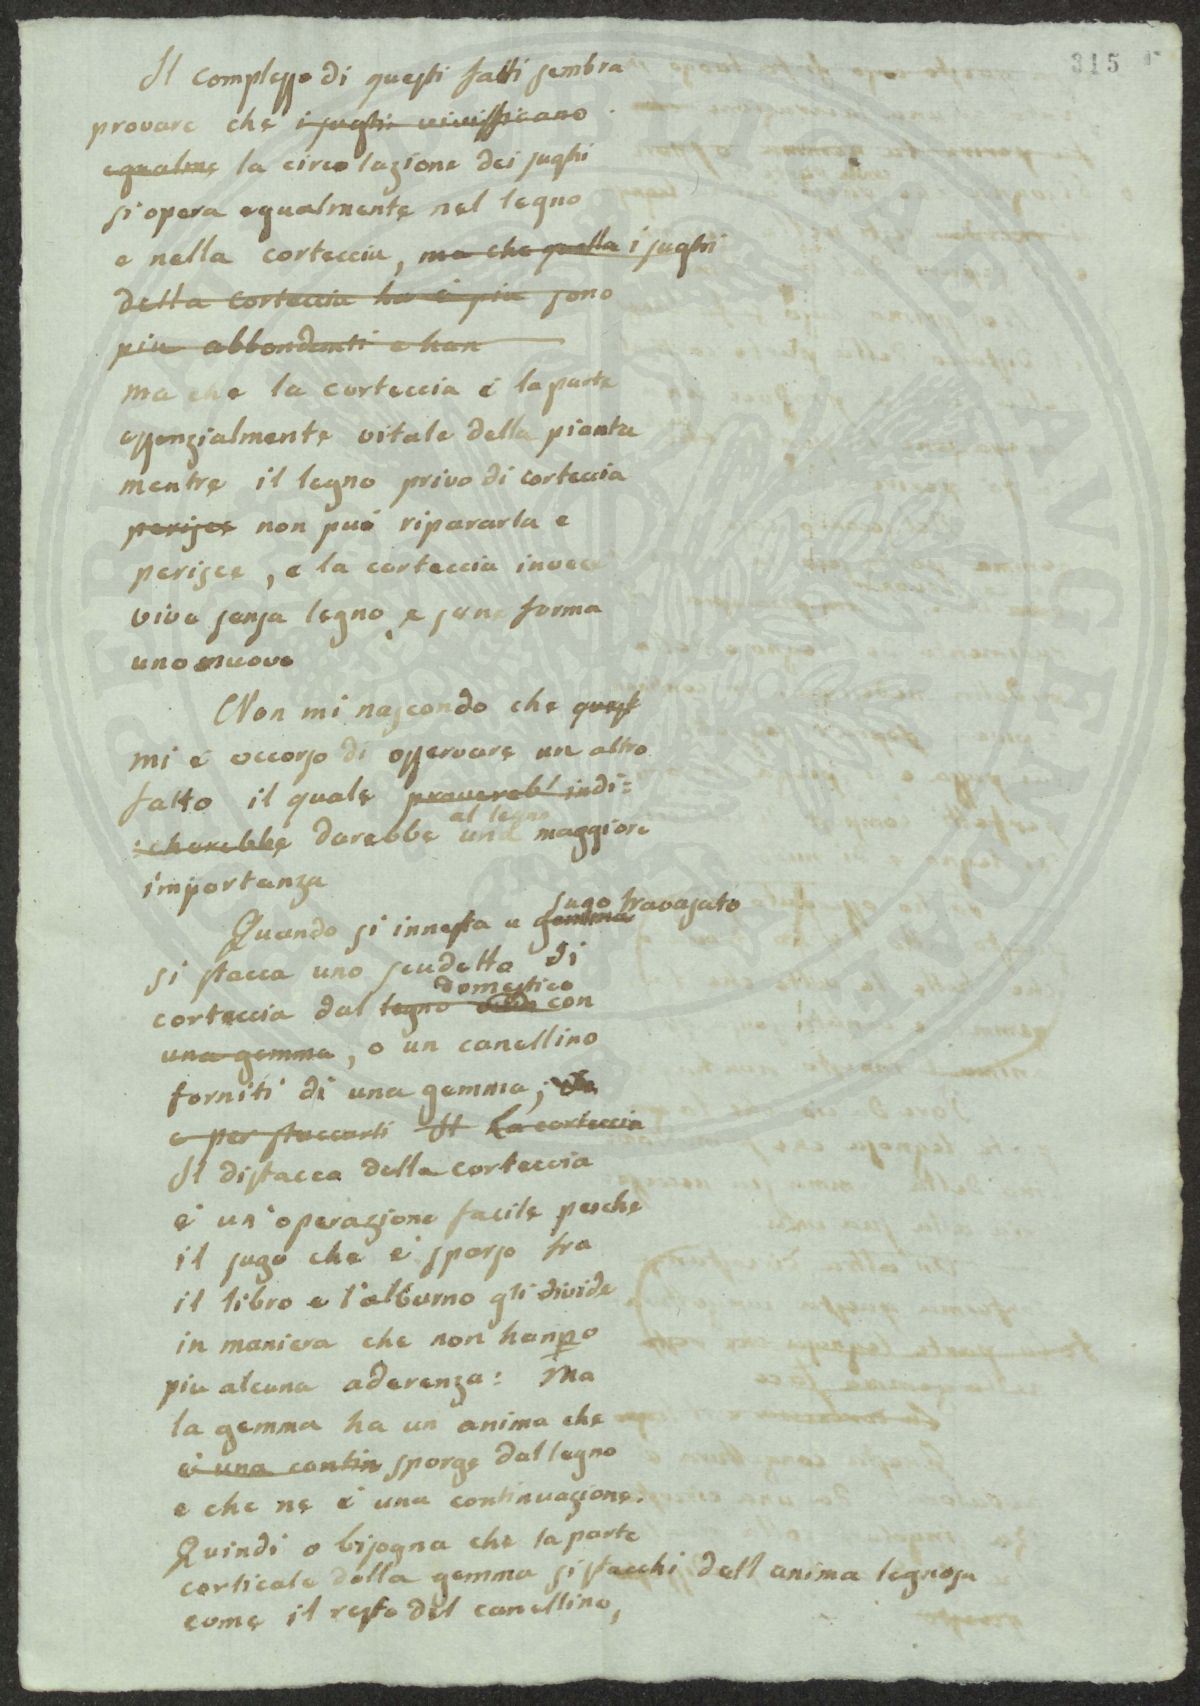 315
Il complesso di questi fatti sembra
provare che i sughi vivificano
egualme la circolazione dei sughi
si opera egualmente nel legno
e nella corteccia, ma che quella i sughi
della corteccia ha è piu sono
piu abbondanti e han
ma che la corteccia è la parte
essenzialmente vitale della pianta
mentre il legno privo di corteccia
perisce non può ripararla e
perisce, e la corteccia invece
vive senza legno e se ne forma
uno nuovo
Non mi nascondo che quest
mi è occorso di osservare un altro
fatto il quale proverebb indi=
:cherebbe darebbe al legno una maggiore
importanza
Quando si innesta a gemma sugo travasato
si stacca uno scudetto di
corteccia dal legno domestico con
una gemma, o un canellino
forniti di una gemma;
e per staccarli Il La corteccia
Il distacca della corteccia
è un'operazione facile perche
il sugo che è sparso fra
il libro e l'alburno gli divide
in maniera che non hanno
piu alcuna aderenza: Ma
la gemma ha un anima che
è una contin sporge dal legno
e che ne è una continuazione.
Quindi o bisogna che la parte
corticale della gemma si stacchi dall anima legnosa
come il resto del canellino,